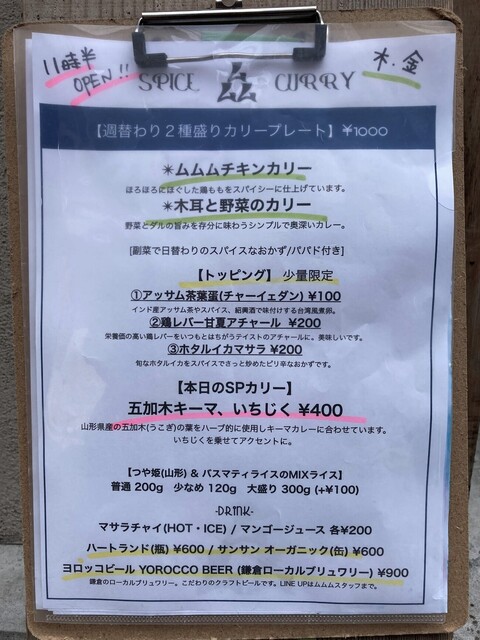 11時半
OPEN!!
木.金
SPICE ム CURRY
【週替わり2種盛りカリープレート】¥1000
✴ムムムチキンカリー
ほろほろにほぐした鶏ももをスパイシーに仕上げています。
✴木耳と野菜のカリー
野菜とダルの旨みを存分に味わうシンプルで奥深いカレー。
[副菜で日替わりのスパイスなおかず/パパド付き]
【トッピング】 少量限定
①アッサム茶葉蛋(チャーイェダン) ¥100
インド産アッサム茶やスパイス、紹興酒で味付けする台湾風煮卵。
②鶏レバー甘夏アチャール ¥200
栄養価の高い鶏レバーをいつもとはちがうテイストのアチャールに。美味しいです。
③ホタルイカマサラ ¥200
旬なホタルイカをスパイスでさっと炒めたピリ辛なおかずです。
【本日のSPカリー】
五加木キーマ、いちじく ¥400
山形県産の五加木(うこぎ)の葉をハーブ的に使用しキーマカレーに合わせています。
いちじくを乗せてアクセントに。
【つや姫(山形) & バスマティライスのMIXライス】
普通 200g 少なめ 120g 大盛り 300g (+¥100)
-DRINK-
マサラチャイ(HOT・ICE) / マンゴージュース 各¥200
ハートランド(瓶) ¥600 / サンサン オーガニック(缶) ¥600
ヨロッコビール YOROCCO BEER (鎌倉ローカルブリュワリー) ¥900
鎌倉のローカルブリュワリー。こだわりのクラフトビールです。LINE UPはムムムスタッフまで。